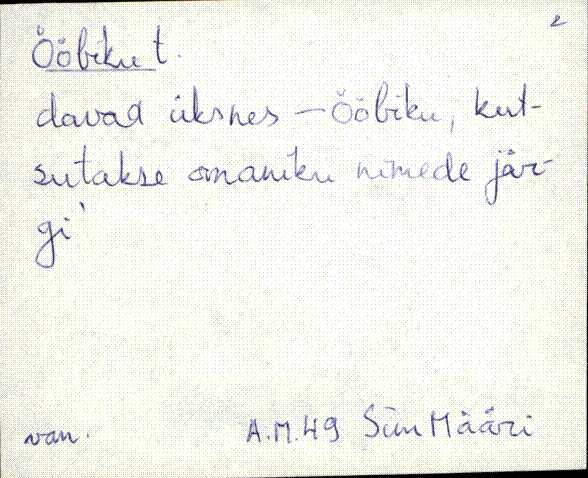 2
Ööbiku t.
davad üksnes – Ööbiku, kut-
sutakse omaniku nimede jär-
gi'
van. A.M.49 Siim Määri